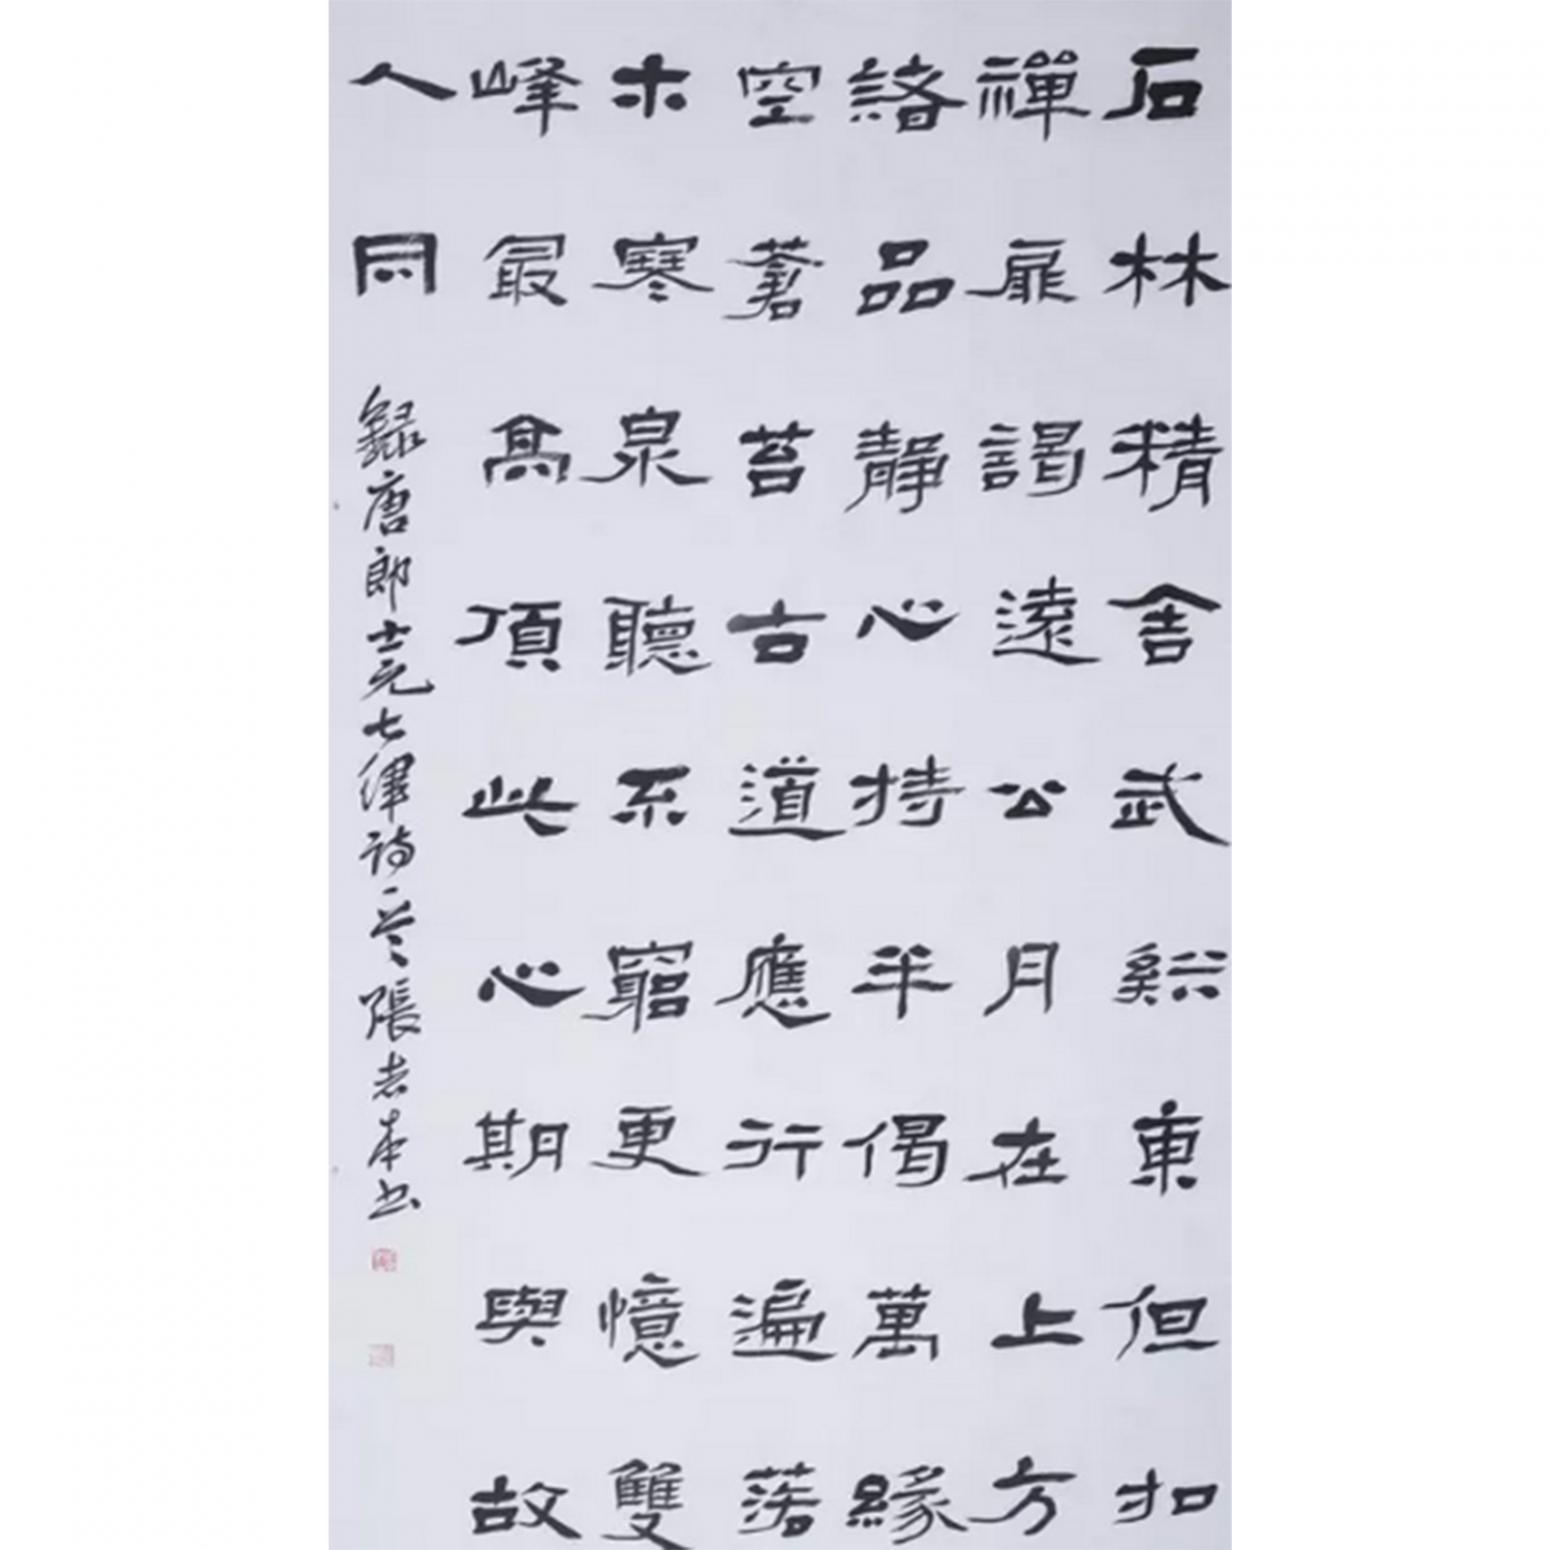 石林精舍武谿東但扣
禪扉謁遠公月在上方
諸品靜心持半偈萬緣
空蒼苔古道應行遍落
木寒泉聽不窮更憶雙
峰最高頂此心期與故
人同
錄唐郎士元七律詩一首張志本書